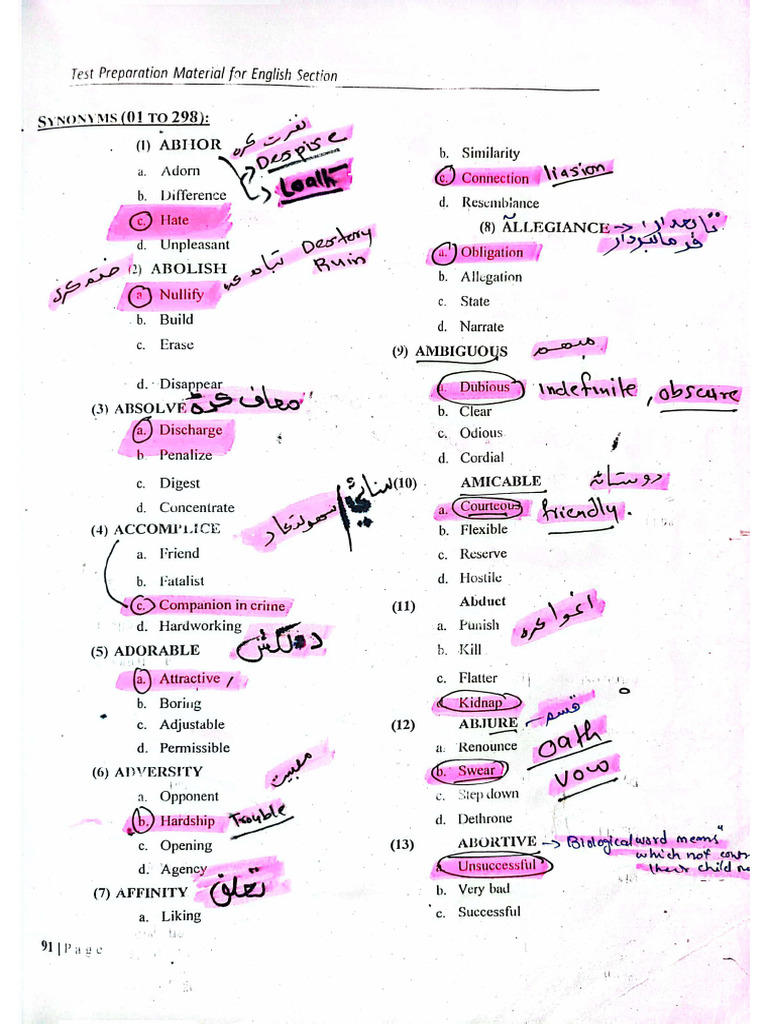 Test Preparation Material for English Section
SYNONYMS (01 TO 298):
(1) ABHOR نفرت کرنا
Despise
a. Adorn
Loath
b. Difference
c. Hate
d. Unpleasant
(2) ABOLISH ختم کرنا
تباہ Destory
Ruin
a. Nullify
b. Build
c. Erase
d. Disappear
(3) ABSOLVE معاف کرنا
a. Discharge
b. Penalize
c. Digest
d. Concentrate
(4) ACCOMPLICE
a. Friend
b. Fatalist
c. Companion in crime
d. Hardworking
(5) ADORABLE دلکش
a. Attractive
b. Boring
c. Adjustable
d. Permissible
(6) ADVERSITY مصیبت
a. Opponent
b. Hardship Trouble
c. Opening
d. Agency
(7) AFFINITY تعلق
a. Liking
91 | Page
b. Similarity
c. Connection liasion
d. Resemblance
(8) ALLEGIANCE تابعدار
فرمانبردار
a. Obligation
b. Allegation
c. State
d. Narrate
(9) AMBIGUOUS مبہم
a. Dubious indefinite, obscure
b. Clear
c. Odious
d. Cordial
(10) AMICABLE دوستانہ
a. Courteous friendly.
b. Flexible
c. Reserve
d. Hostile
(11) Abduct اغوا کرنا
a. Punish
b. Kill
c. Flatter
d. Kidnap
(12) ABJURE قسم
a. Renounce oath
b. Swear vow
c. Step down
d. Dethrone
(13) ABORTIVE -> Biological word means"
which not
their child
a. Unsuccessful
b. Very bad
c. Successful